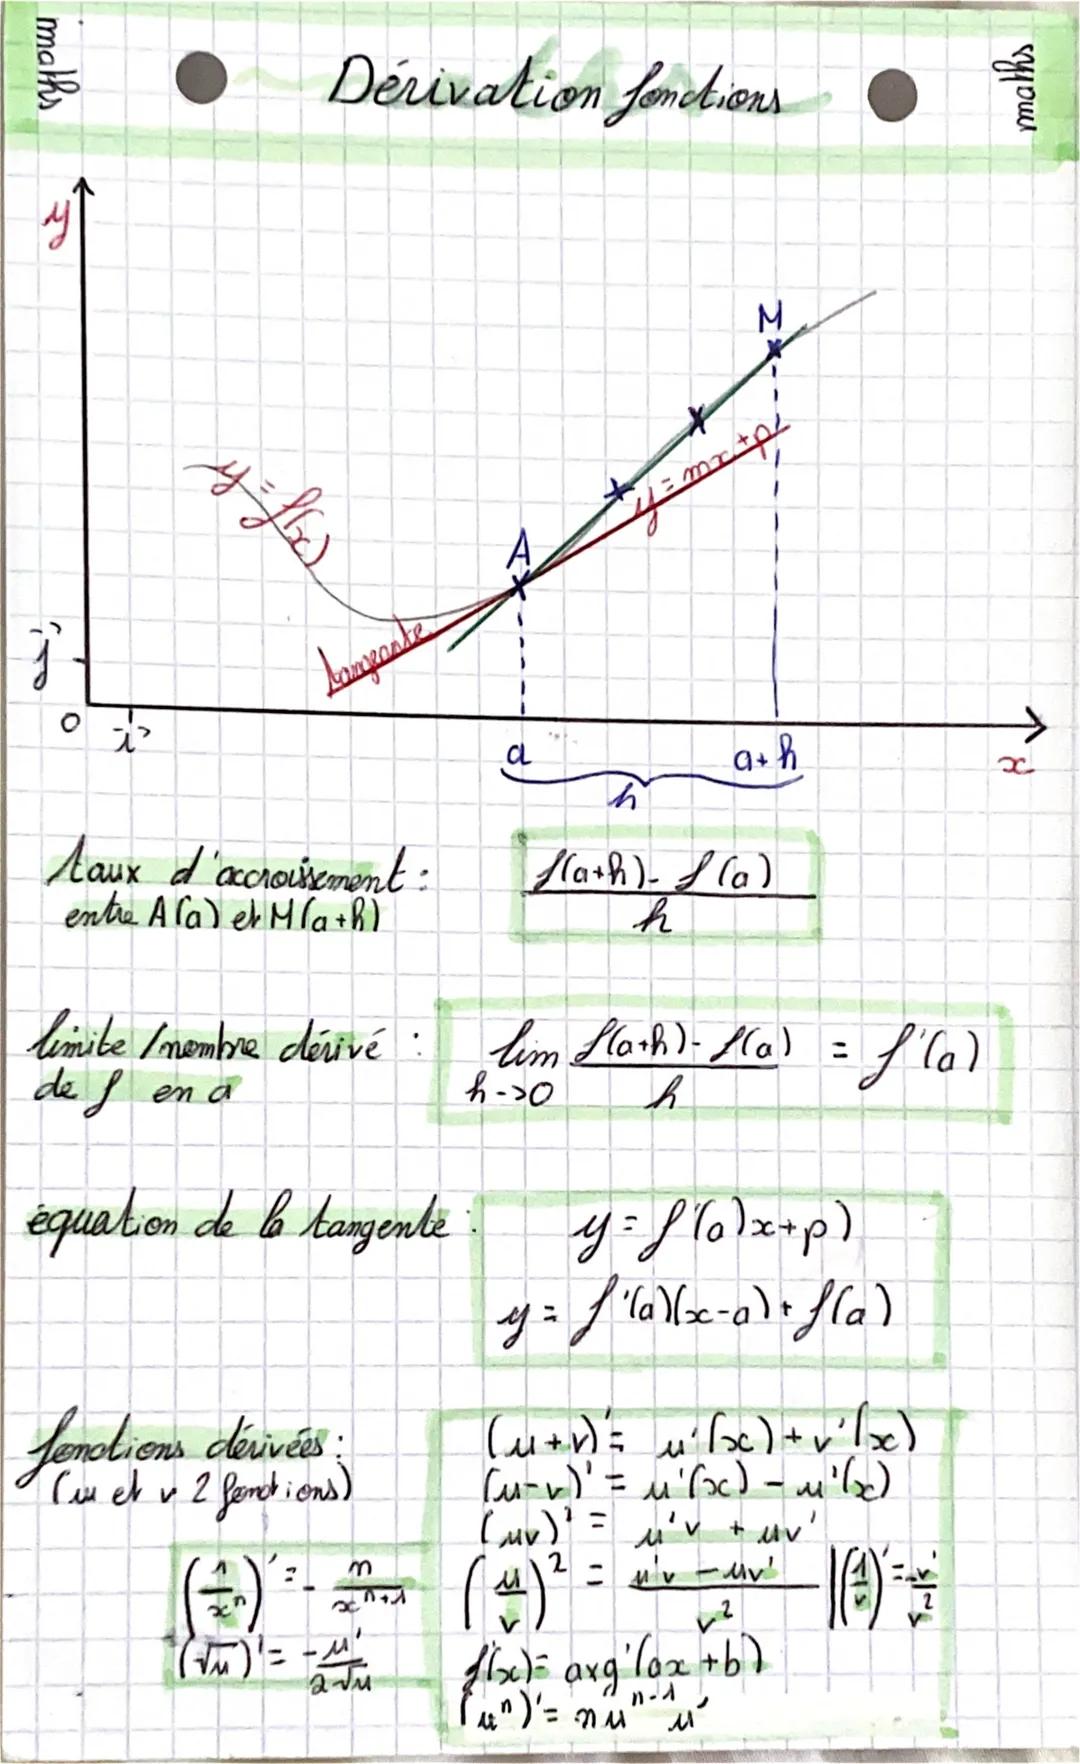 maths
Dérivation fonctions
maths
y
M
y = mx + p
y = f(x)
A
tangente
j
0
i
a
a + h
x
h
taux d'accroissement :
entre A(a) et M(a+h)
f(a+h) - f(a)
h
limite / nombre dérivé :
de f en a
lim f(a+h) - f(a) = f'(a)
h->0 h
équation de la tangente :
y = f'(a)x+p)
y = f'(a)(x-a) + f(a)
fonctions dérivées :
(u et v 2 fonctions)
(u+v)' = u'(x) + v'(x)
(u-v)' = u'(x) - u'(x)
(uv)' = u'v + uv'
(u/v)² = u'v - uv' / v² || (1/v)' = -v'/v²
f'(x) = axg'(ax+b)
(uⁿ)' = nuⁿ⁻¹ u'
(1/xⁿ)' = - n/xⁿ⁺¹
(√u)' = -u'/2√u